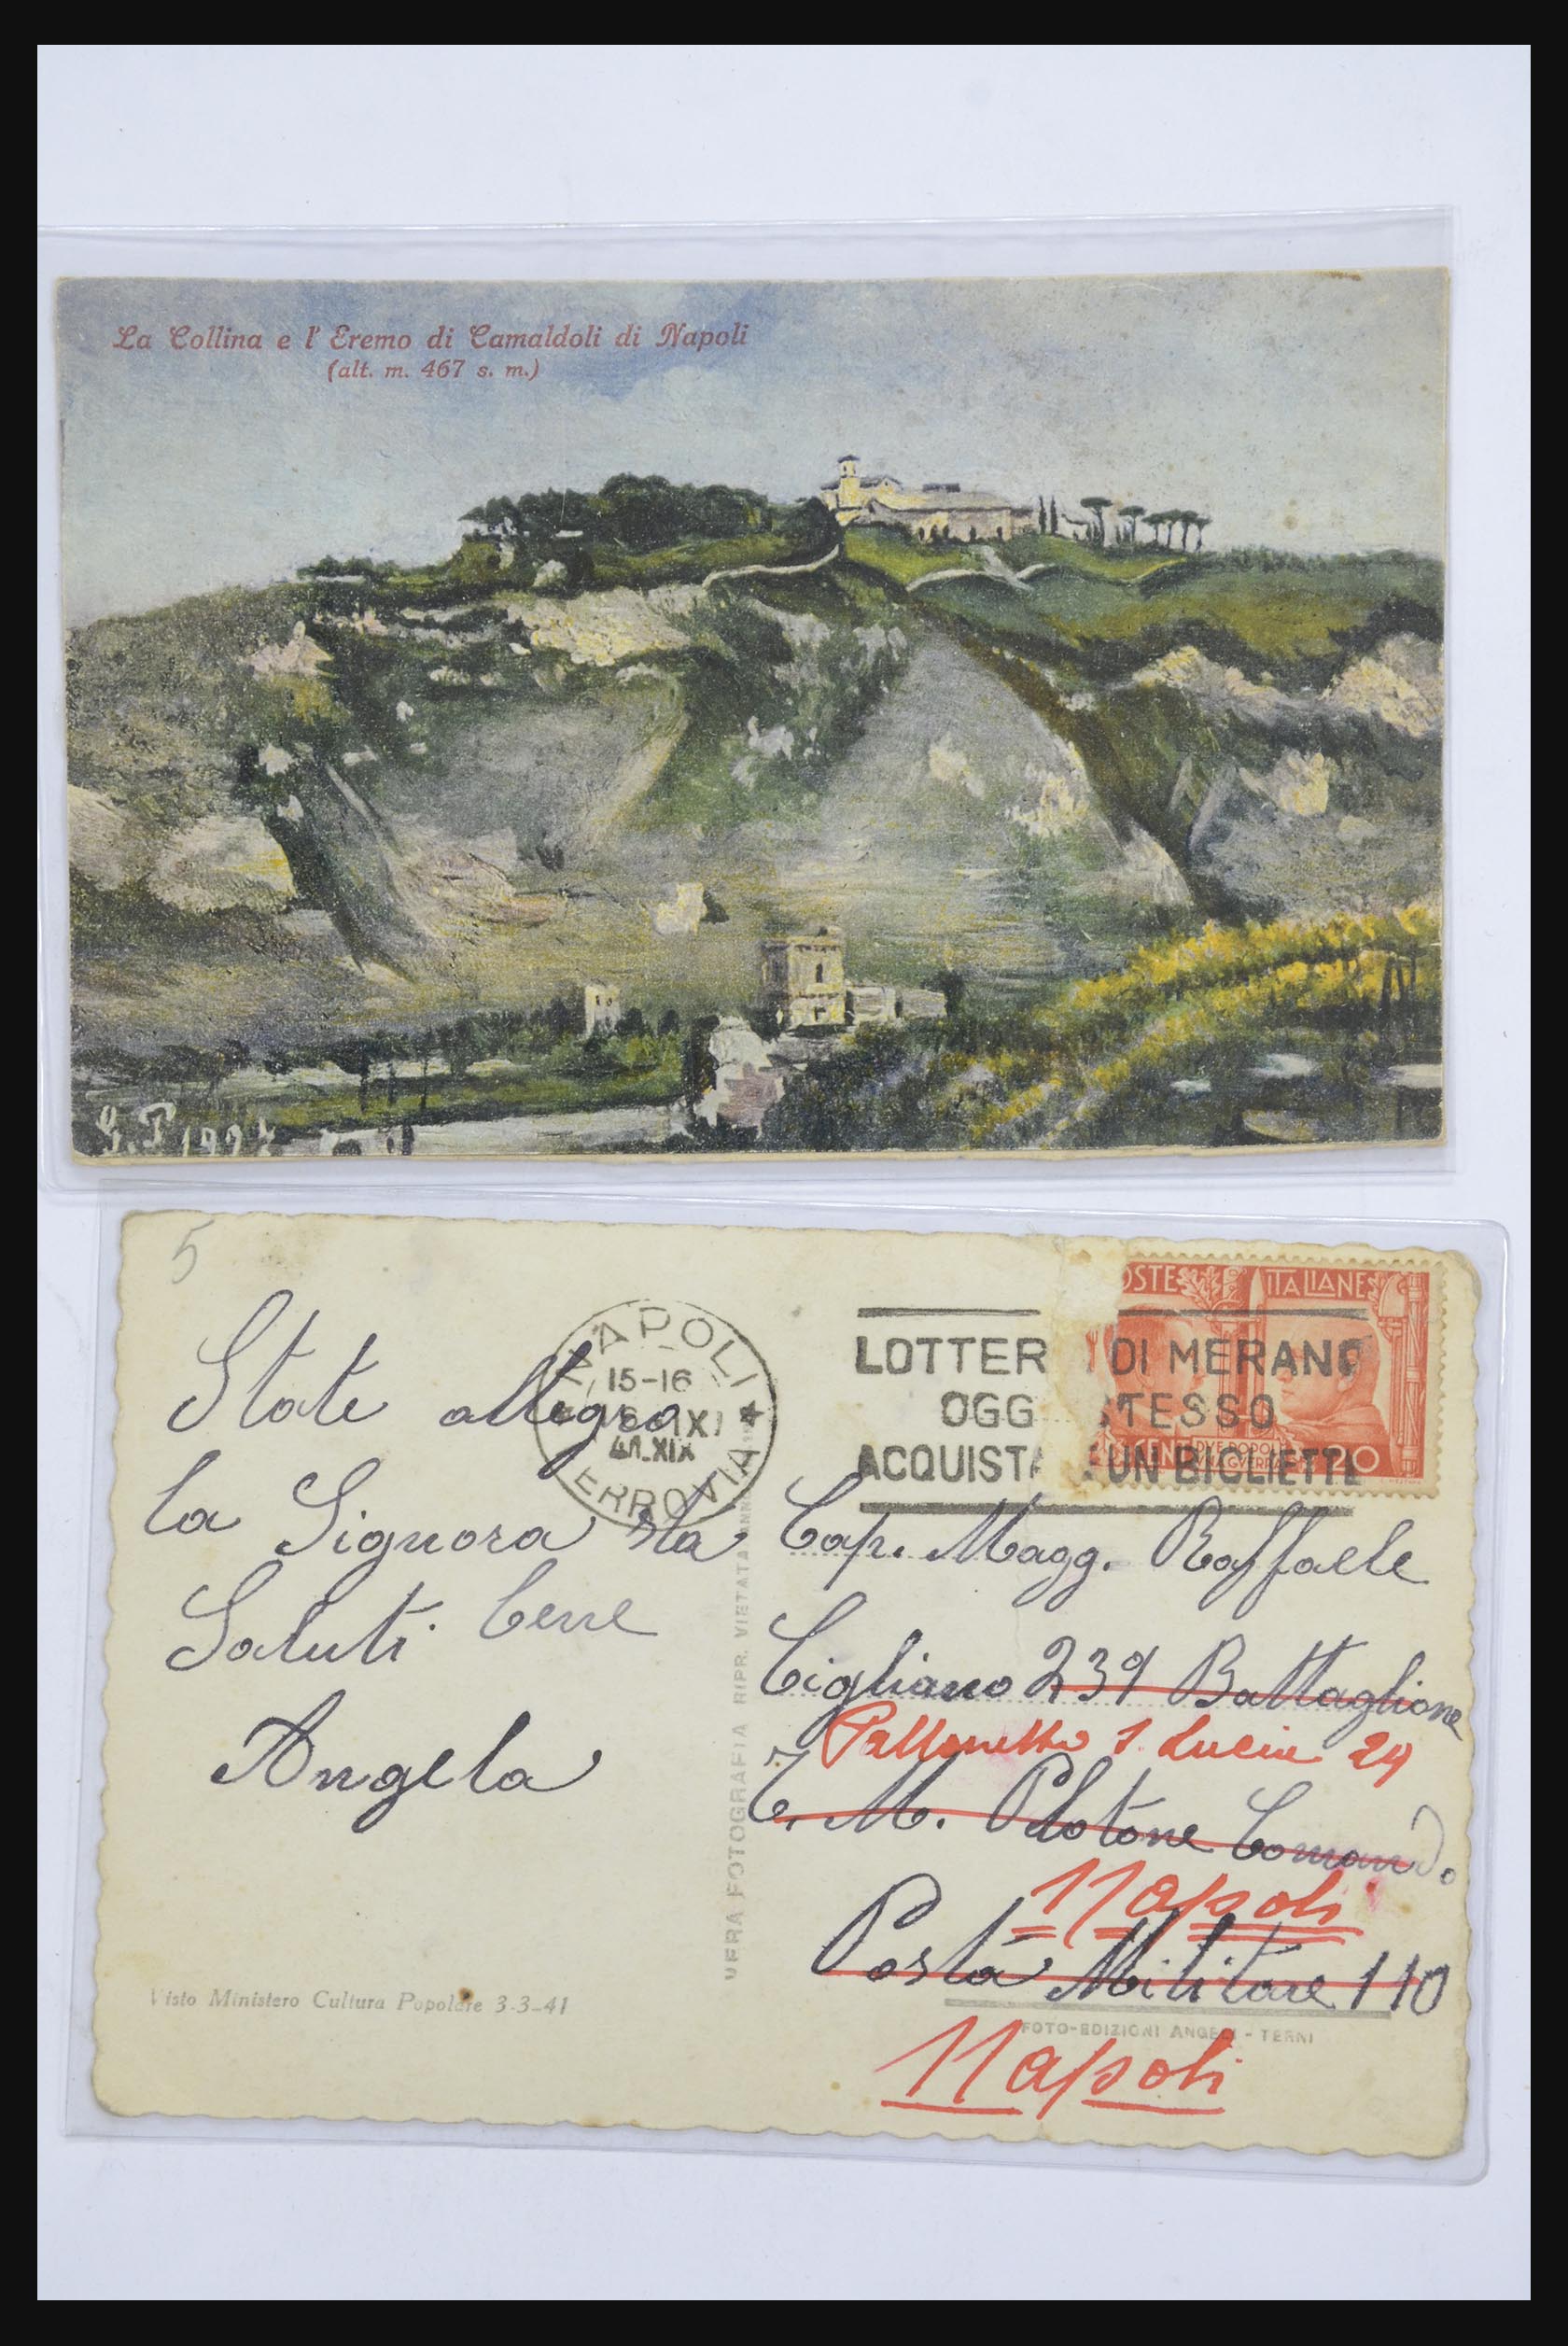 La Collina e l' Eremo di Camaldoli di Napoli
(alt. m. 467 s. m.)
G. P. 192
5
State allegro
la Signora sta
bene
Saluti
Angela
NAPOLI
15-16
XI
41.XIX
FERROVIA
LOTTER DI MERANO
OGG STESSO
ACQUISTA UN BIGLIETT
OSTE ITALIANE
CENT 20
DVE POPOLI
VNA GVERRA
Cap. Magg. Raffaele
Cigliano 239 Battaglione
Pallonetto S. Lucia 24
C. M. Plotone Comando.
Napoli
Posta Militare 110
Napoli
VERA FOTOGRAFIA RIPR. VIETATA ANNO
Visto Ministero Cultura Popolare 3-3-41
FOTO-EDIZIONI ANGELI - TERNI